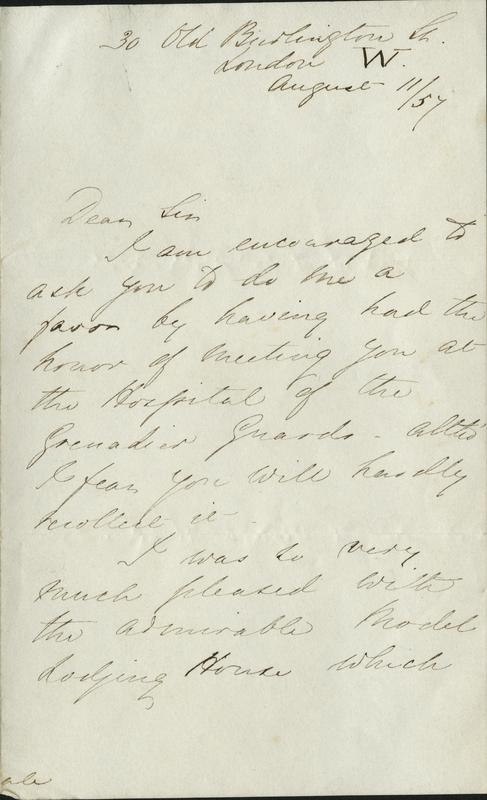 30 Old Burlington St.
London W.
August 11/57
Dear Sir
I am encouraged to
ask you to do me a
favor by having had the
honor of meeting you at
the Hospital of the
Grenadier Guards - altho'
I fear you will hardly
recollect it -
I was so very
much pleased with
the admirable Model
Lodging House which